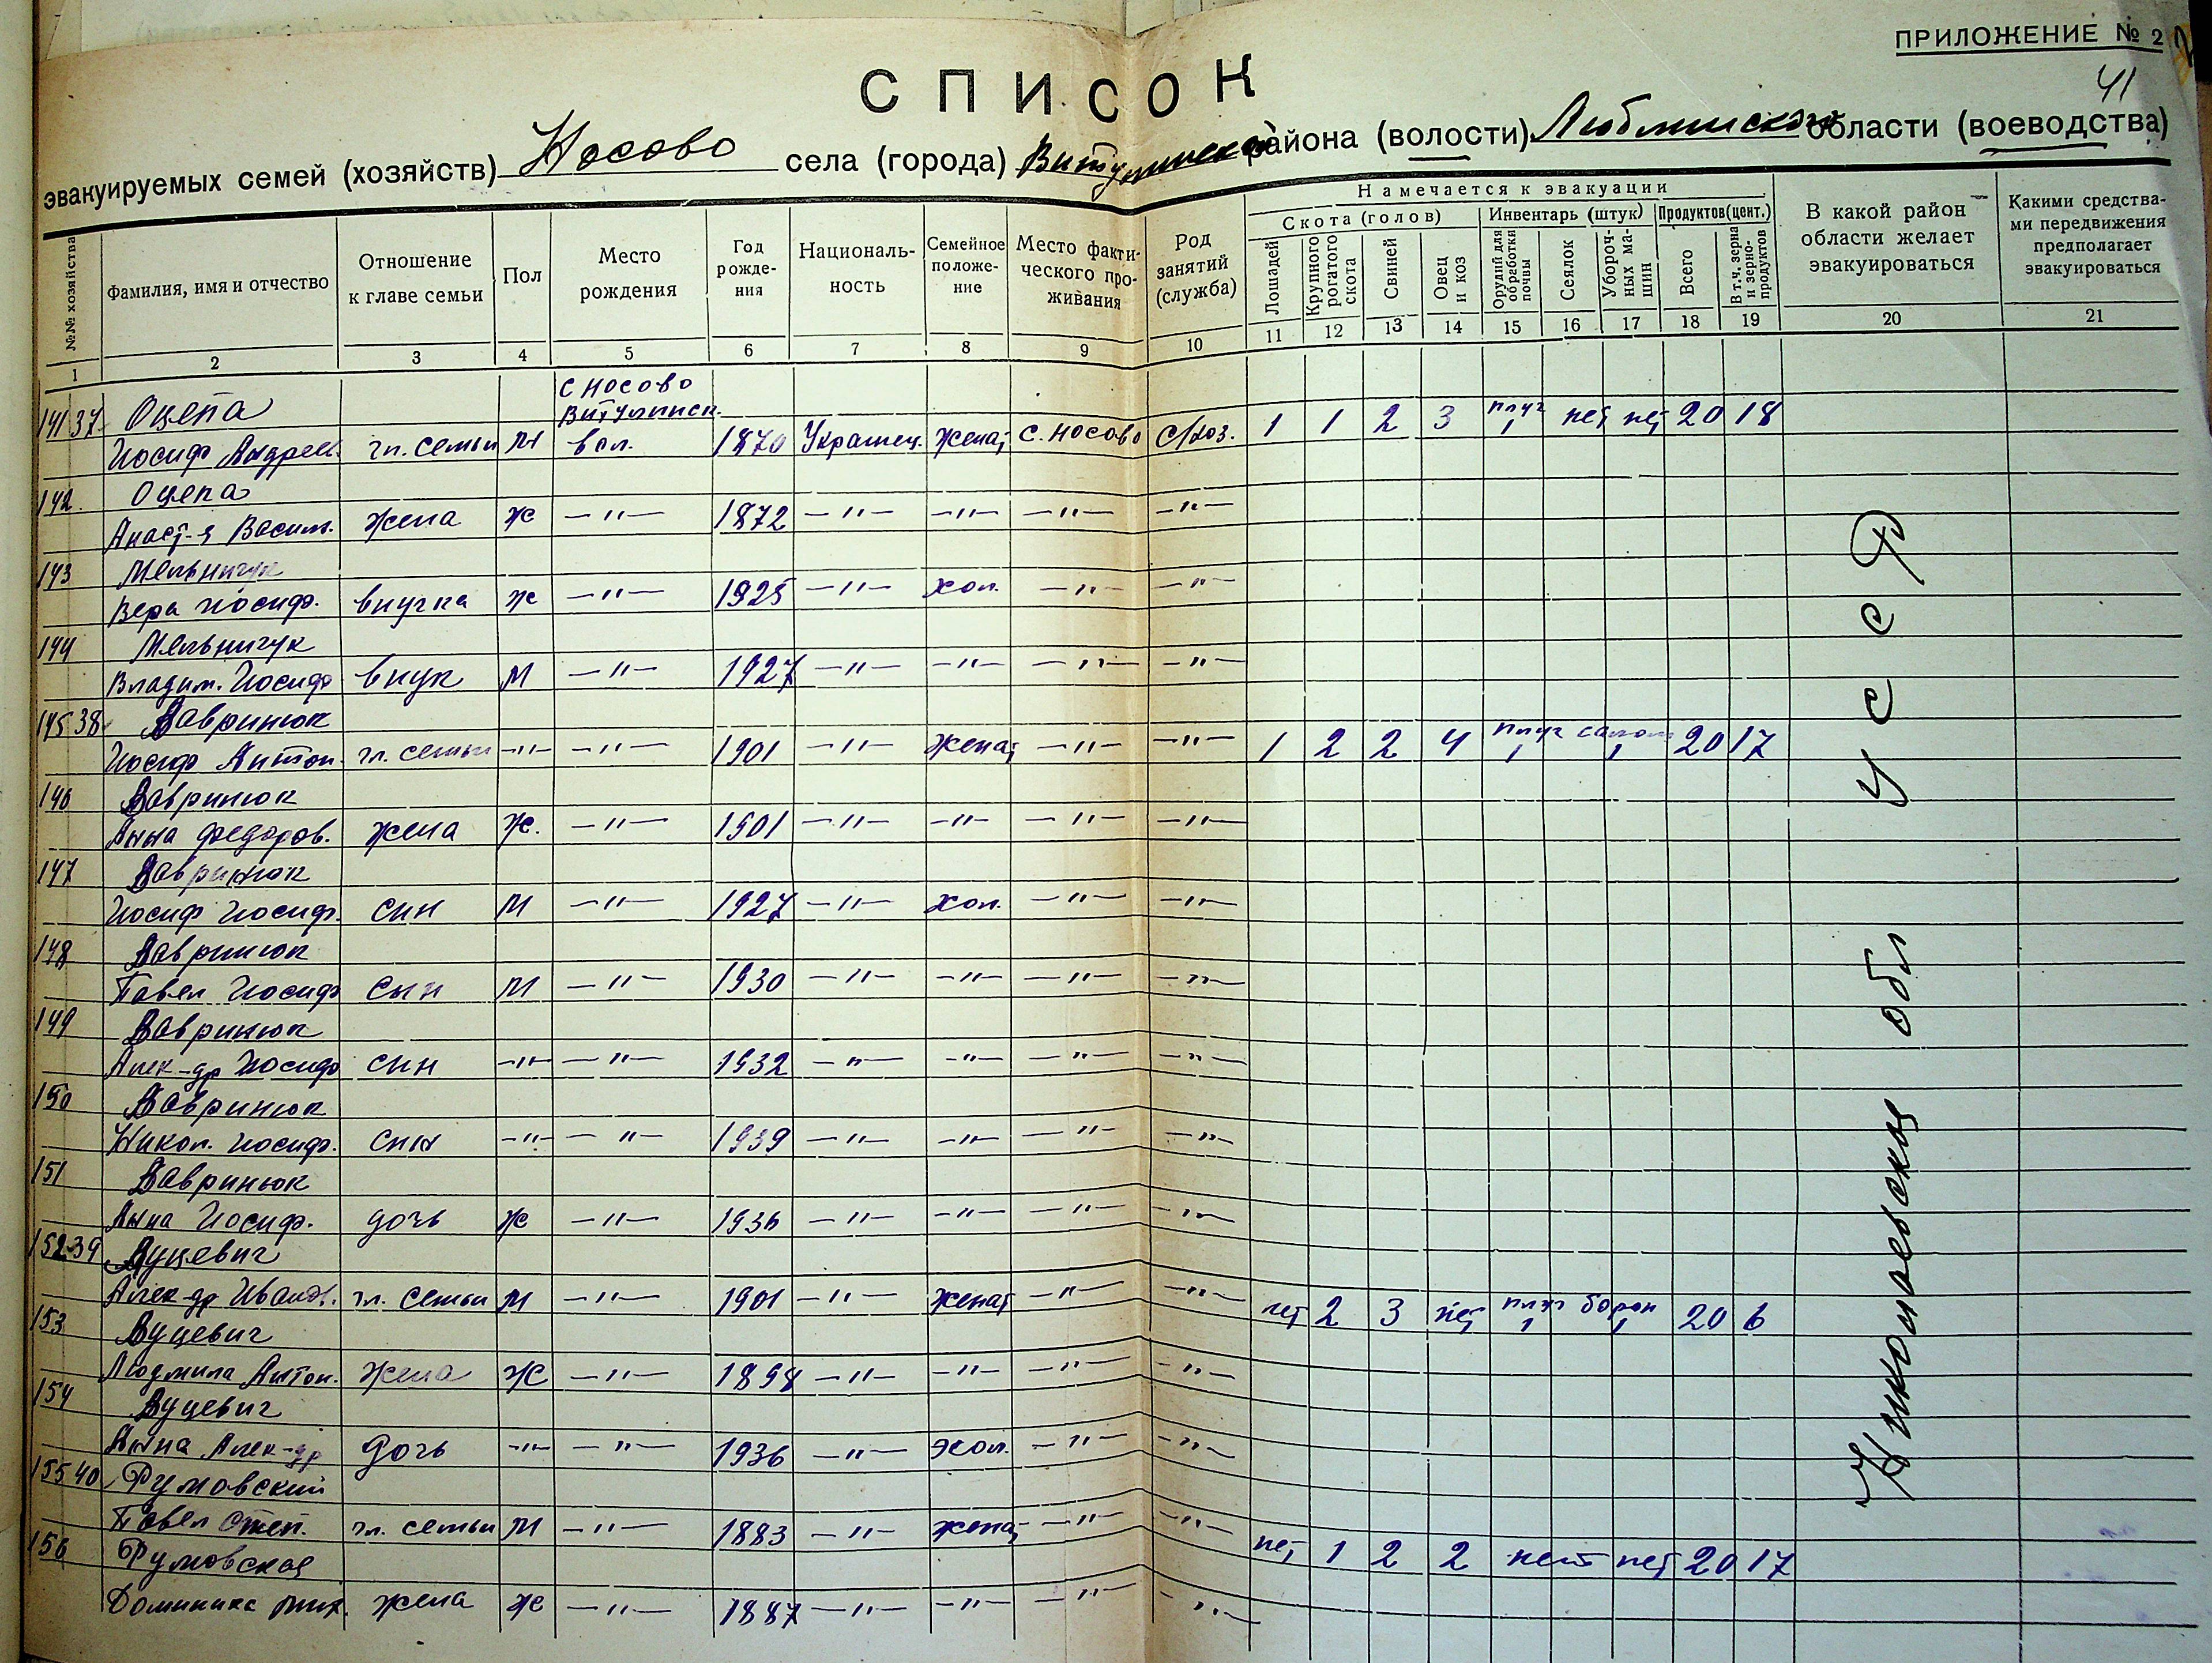 ПРИЛОЖЕНИЕ № 2
41
СПИСОК
эвакуируемых семей (хозяйств) Носово села (города) Витулинской района (волости) Люблинского области (воеводства)
№№ хозяйства
Фамилия, имя и отчество
Отношение к главе семьи
Пол
Место рождения
Год рожде-ния
Националь-ность
Семейное положе-ние
Место факти-ческого про-живания
Род занятий (служба)
Намечается к эвакуации
Скота (голов)
Инвентарь (штук)
Продуктов (цент.)
Лошадей
Крупного рогатого скота
Свиней
Овец и коз
Орудий для обработки почвы
Сеялок
Убороч-ных ма-шин
Всего
В т. ч. зерна и зерно-продуктов
В какой район области желает эвакуироваться
Какими средства-ми передвижения предполагает эвакуироваться
1 2 3 4 5 6 7 8 9 10 11 12 13 14 15 16 17 18 19 20 21
141 37 Оцепа с Носово Витулинск.
Иосиф Андреев. гл. семьи М вол. 1870 Украинец. женат с. Носово С/хоз. 1 1 2 3 плуг 1 нет нет 20 18
142 Оцепа
Анаст-я Васил. жена ж —"— 1872 —"— —"— —"— —"—
143 Мельничук
Вера Иосиф. внучка ж —"— 1925 —"— хол. —"— —"—
144 Мельничук
Владим. Иосиф внук М —"— 1927 —"— —"— —"— —"—
145 38 Вавринюк
Иосиф Антон. гл. семьи —"— —"— 1901 —"— женат —"— —"— 1 2 2 4 плуг 1 1 20 17
146 Вавринюк
Анна Федоров. жена Ж. —"— 1901 —"— —"— —"— —"—
147 Вавринюк
Иосиф Иосиф. син М —"— 1927 —"— хол. —"— —"—
148 Вавринюк
Павел Иосиф сын М —"— 1930 —"— —"— —"— —"—
149 Вавринюк
Алек-др Иосиф син —"— —"— 1932 —"— —"— —"— —"—
150 Вавринюк
Никол. Иосиф. син —"— —"— 1939 —"— —"— —"— —"—
151 Вавринюк
Анна Иосиф. дочь Ж —"— 1936 —"— —"— —"— —"—
152 39 Вуцевич
Алек-др Иванов. гл. семьи М —"— 1901 —"— женат —"— —"— нет 2 3 нет плуг 1 борон 1 20 6
153 Вуцевич
Людмила Антон. жена Ж —"— 1898 —"— —"— —"— —"—
154 Вуцевич
Анна Алек-др дочь —"— —"— 1936 —"— хол. —"— —"—
155 40 Румовский
Павел Степ. гл. семьи М —"— 1883 —"— женат —"— —"— нет 1 2 2 нет нет 20 17
156 Румовская
Доминика Мих. жена Ж —"— 1887 —"— —"— —"— —"—
Николаевская обл УССР